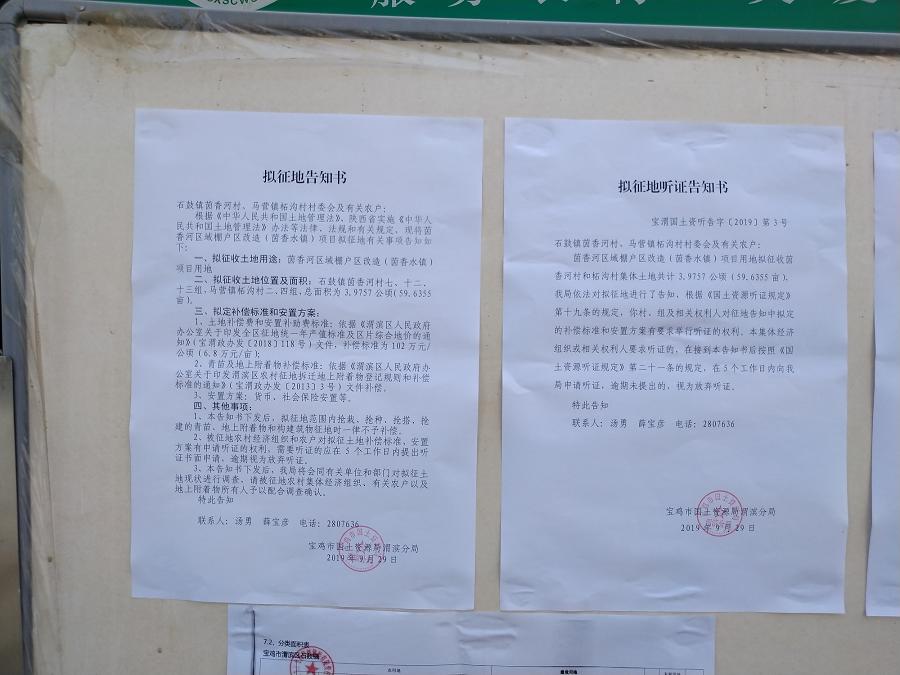 拟征地告知书
石鼓镇茵香河村、马营镇柘沟村村委会及有关农户:
根据《中华人民共和国土地管理法》、陕西省实施《中华人
民共和国土地管理法》办法等法律、法规和有关规定，现将茵
香河区域棚户区改造（茵香水镇）项目拟征地有关事项告知如
下:
一、拟征收土地用途: 茵香河区域棚户区改造（茵香水镇）
项目用地
二、拟征收土地位置及面积: 石鼓镇茵香河村七、十二、
十三组,马营镇柘沟村二、四组,总面积为 3.9757 公顷(59.6355
亩)。
三、拟定补偿标准和安置方案:
1、土地补偿费和安置补助费标准: 依据《渭滨区人民政府
办公室关于印发全区征地统一年产值标准及区片综合地价的通
知》(宝渭政办发〔2018〕118 号) 文件，补偿标准为 102 万元/
公顷 (6.8 万元/亩);
2、青苗及地上附着物补偿标准: 依据《渭滨区人民政府办
公室关于印发渭滨区农村征地拆迁地上附着物登记规则和补偿
标准的通知》(宝渭政办发〔2013〕3 号) 文件补偿。
3、安置方案: 货币、社会保险安置等。
四、其他事项:
1、本告知书下发后，拟征地范围内抢栽、抢种、抢搭、抢
建的青苗、地上附着物和构建筑物征地时一律不予补偿。
2、被征地农村经济组织和农户对拟征土地补偿标准、安置
方案有申请听证的权利，需要听证的应在 5 个工作日内提出听
证书面申请，逾期视为放弃听证。
3、本告知书下发后，我局将会同有关单位和部门对拟征土
地现状进行调查，请被征地农村集体经济组织、有关农户以及
地上附着物所有人予以配合调查确认。
特此告知
联系人: 汤勇 薛宝彦 电话: 2807636
宝鸡市国土资源局渭滨分局
2019 年 9 月 29 日
拟征地听证告知书
宝渭国土资听告字〔2019〕第 3 号
石鼓镇茵香河村、马营镇柘沟村村委会及有关农户:
茵香河区域棚户区改造（茵香水镇）项目用地拟征收茵
香河村和柘沟村集体土地共计 3.9757 公顷 (59.6355 亩)。
我局依法对拟征地进行了告知，根据《国土资源听证规定》
第十九条的规定，你村、组及相关权利人对征地告知中拟定
的补偿标准和安置方案有要求举行听证的权利。本集体经济
组织或相关权利人要求听证的，在接到本告知书后按照《国
土资源听证规定》第二十一条的规定，在 5 个工作日内向我
局申请听证，逾期未提出的，视为放弃听证。
特此告知
联系人: 汤勇 薛宝彦 电话: 2807636
宝鸡市国土资源局渭滨分局
2019 年 9 月 29 日
7.2、分类面积表
宝鸡市渭滨区石鼓镇